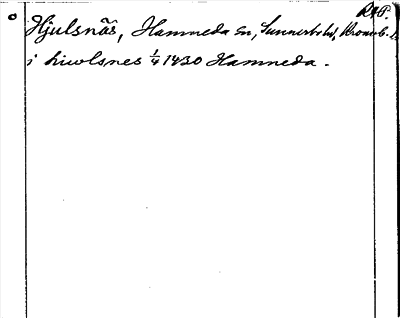 RAP.
Hjulsnäs, Hamneda sn, Sunnerbo hd, Kronob. l.
i hiwlsnes 1/4 1430 Hamneda.